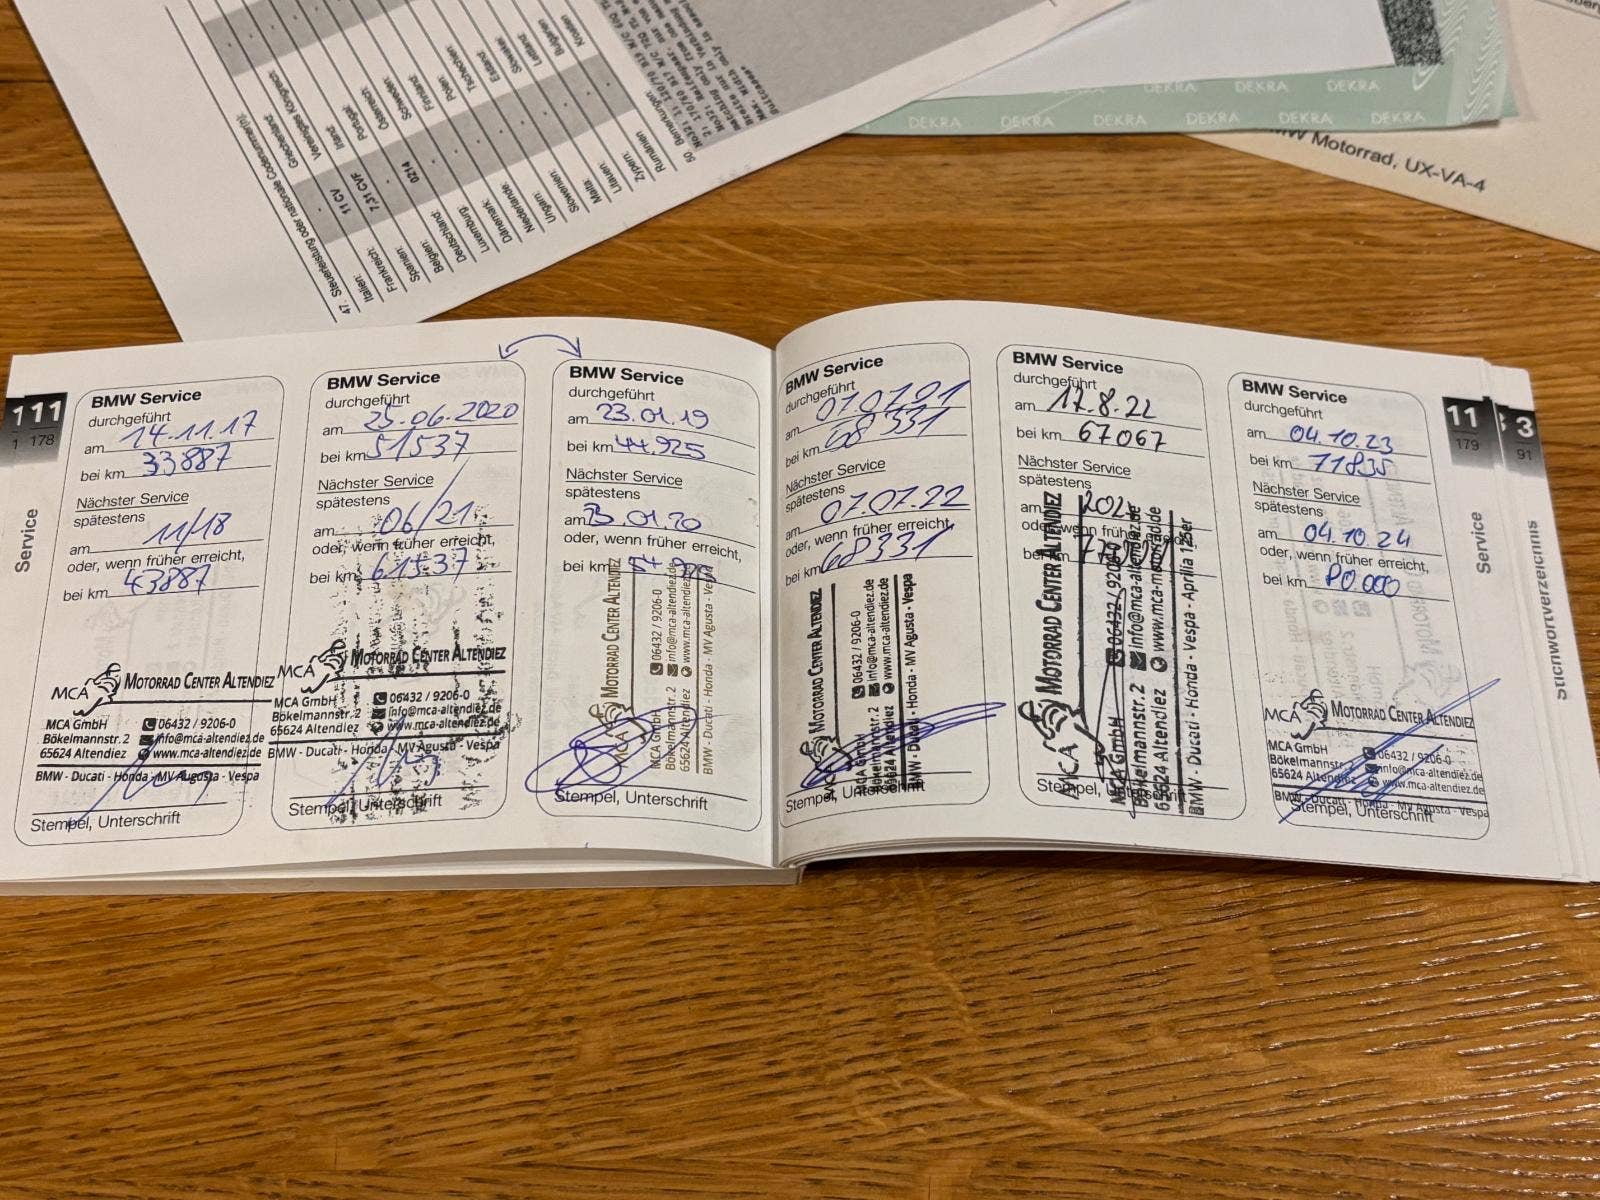 47. Steuerleistung oder nationale Codenummer(n):
Italien:
Frankreich:
11 CV
Spanien:
7,31 CVF
Belgien:
Deutschland:
0214
Luxemburg:
Dänemark:
Niederlande:
Ungarn:
Slowenien:
Malta:
Litauen:
Zypern:
Rumänien
Griechenland:
Vereinigtes Königreich:
Irland:
Portugal:
Österreich:
Schweden:
Finnland:
Polen:
Tschechien:
Estland:
Slowakei:
Lettland:
Bulgarien:
Kroatien:
50 Bemerkungen:
DEKRA DEKRA DEKRA
DEKRA DEKRA DEKRA DEKRA DEKRA
BMW Motorrad, UX-VA-4
111
1 178
Service
BMW Service
durchgeführt
am 14.11.17
bei km 33887
Nächster Service
spätestens
am 11/18
oder, wenn früher erreicht,
bei km 43887
MCA MOTORRAD CENTER ALTENDIEZ
MCA GmbH
Bökelmannstr. 2
65624 Altendiez
06432 / 9206-0
info@mca-altendiez.de
www.mca-altendiez.de
BMW - Ducati - Honda - MV Agusta - Vespa
Stempel, Unterschrift
BMW Service
durchgeführt
am 25.06.2020
bei km 51537
Nächster Service
spätestens
am 06/21
oder, wenn früher erreicht,
bei km 61537
MCA MOTORRAD CENTER ALTENDIEZ
MCA GmbH
Bökelmannstr. 2
65624 Altendiez
06432 / 9206-0
info@mca-altendiez.de
www.mca-altendiez.de
BMW - Ducati - Honda - MV Agusta - Vespa
Stempel, Unterschrift
BMW Service
durchgeführt
am 23.01.19
bei km 44.925
Nächster Service
spätestens
am 23.01.20
oder, wenn früher erreicht,
bei km
MCA MOTORRAD CENTER ALTENDIEZ
MCA GmbH
Bökelmannstr. 2
65624 Altendiez
06432 / 9206-0
info@mca-altendiez.de
www.mca-altendiez.de
BMW - Ducati - Honda - MV Agusta - Vespa
Stempel, Unterschrift
BMW Service
durchgeführt
am
bei km 68331
Nächster Service
spätestens
am 07.07.22
oder, wenn früher erreicht,
bei km 68331
MCA MOTORRAD CENTER ALTENDIEZ
MCA GmbH
Bökelmannstr. 2
65624 Altendiez
06432 / 9206-0
info@mca-altendiez.de
www.mca-altendiez.de
BMW - Ducati - Honda - MV Agusta - Vespa
Stempel, Unterschrift
BMW Service
durchgeführt
am 17.8.22
bei km 67067
Nächster Service
spätestens
am
oder, wenn früher
bei km
MCA MOTORRAD CENTER ALTENDIEZ
MCA GmbH
Bökelmannstr. 2
65624 Altendiez
06432 / 9206-0
info@mca-altendiez.de
www.mca-altendiez.de
BMW - Ducati - Honda - Vespa - Aprilia 125er
Stempel, Unterschrift
BMW Service
durchgeführt
am 04.10.23
bei km 71835
Nächster Service
spätestens
am 04.10.24
oder, wenn früher erreicht,
bei km 80.000
MCA MOTORRAD CENTER ALTENDIEZ
MCA GmbH
Bökelmannstr. 2
65624 Altendiez
06432 / 9206-0
info@mca-altendiez.de
www.mca-altendiez.de
BMW - Ducati - Honda - MV Agusta - Vespa
Stempel, Unterschrift
11
179
Service
3
91
Stichwortverzeichnis